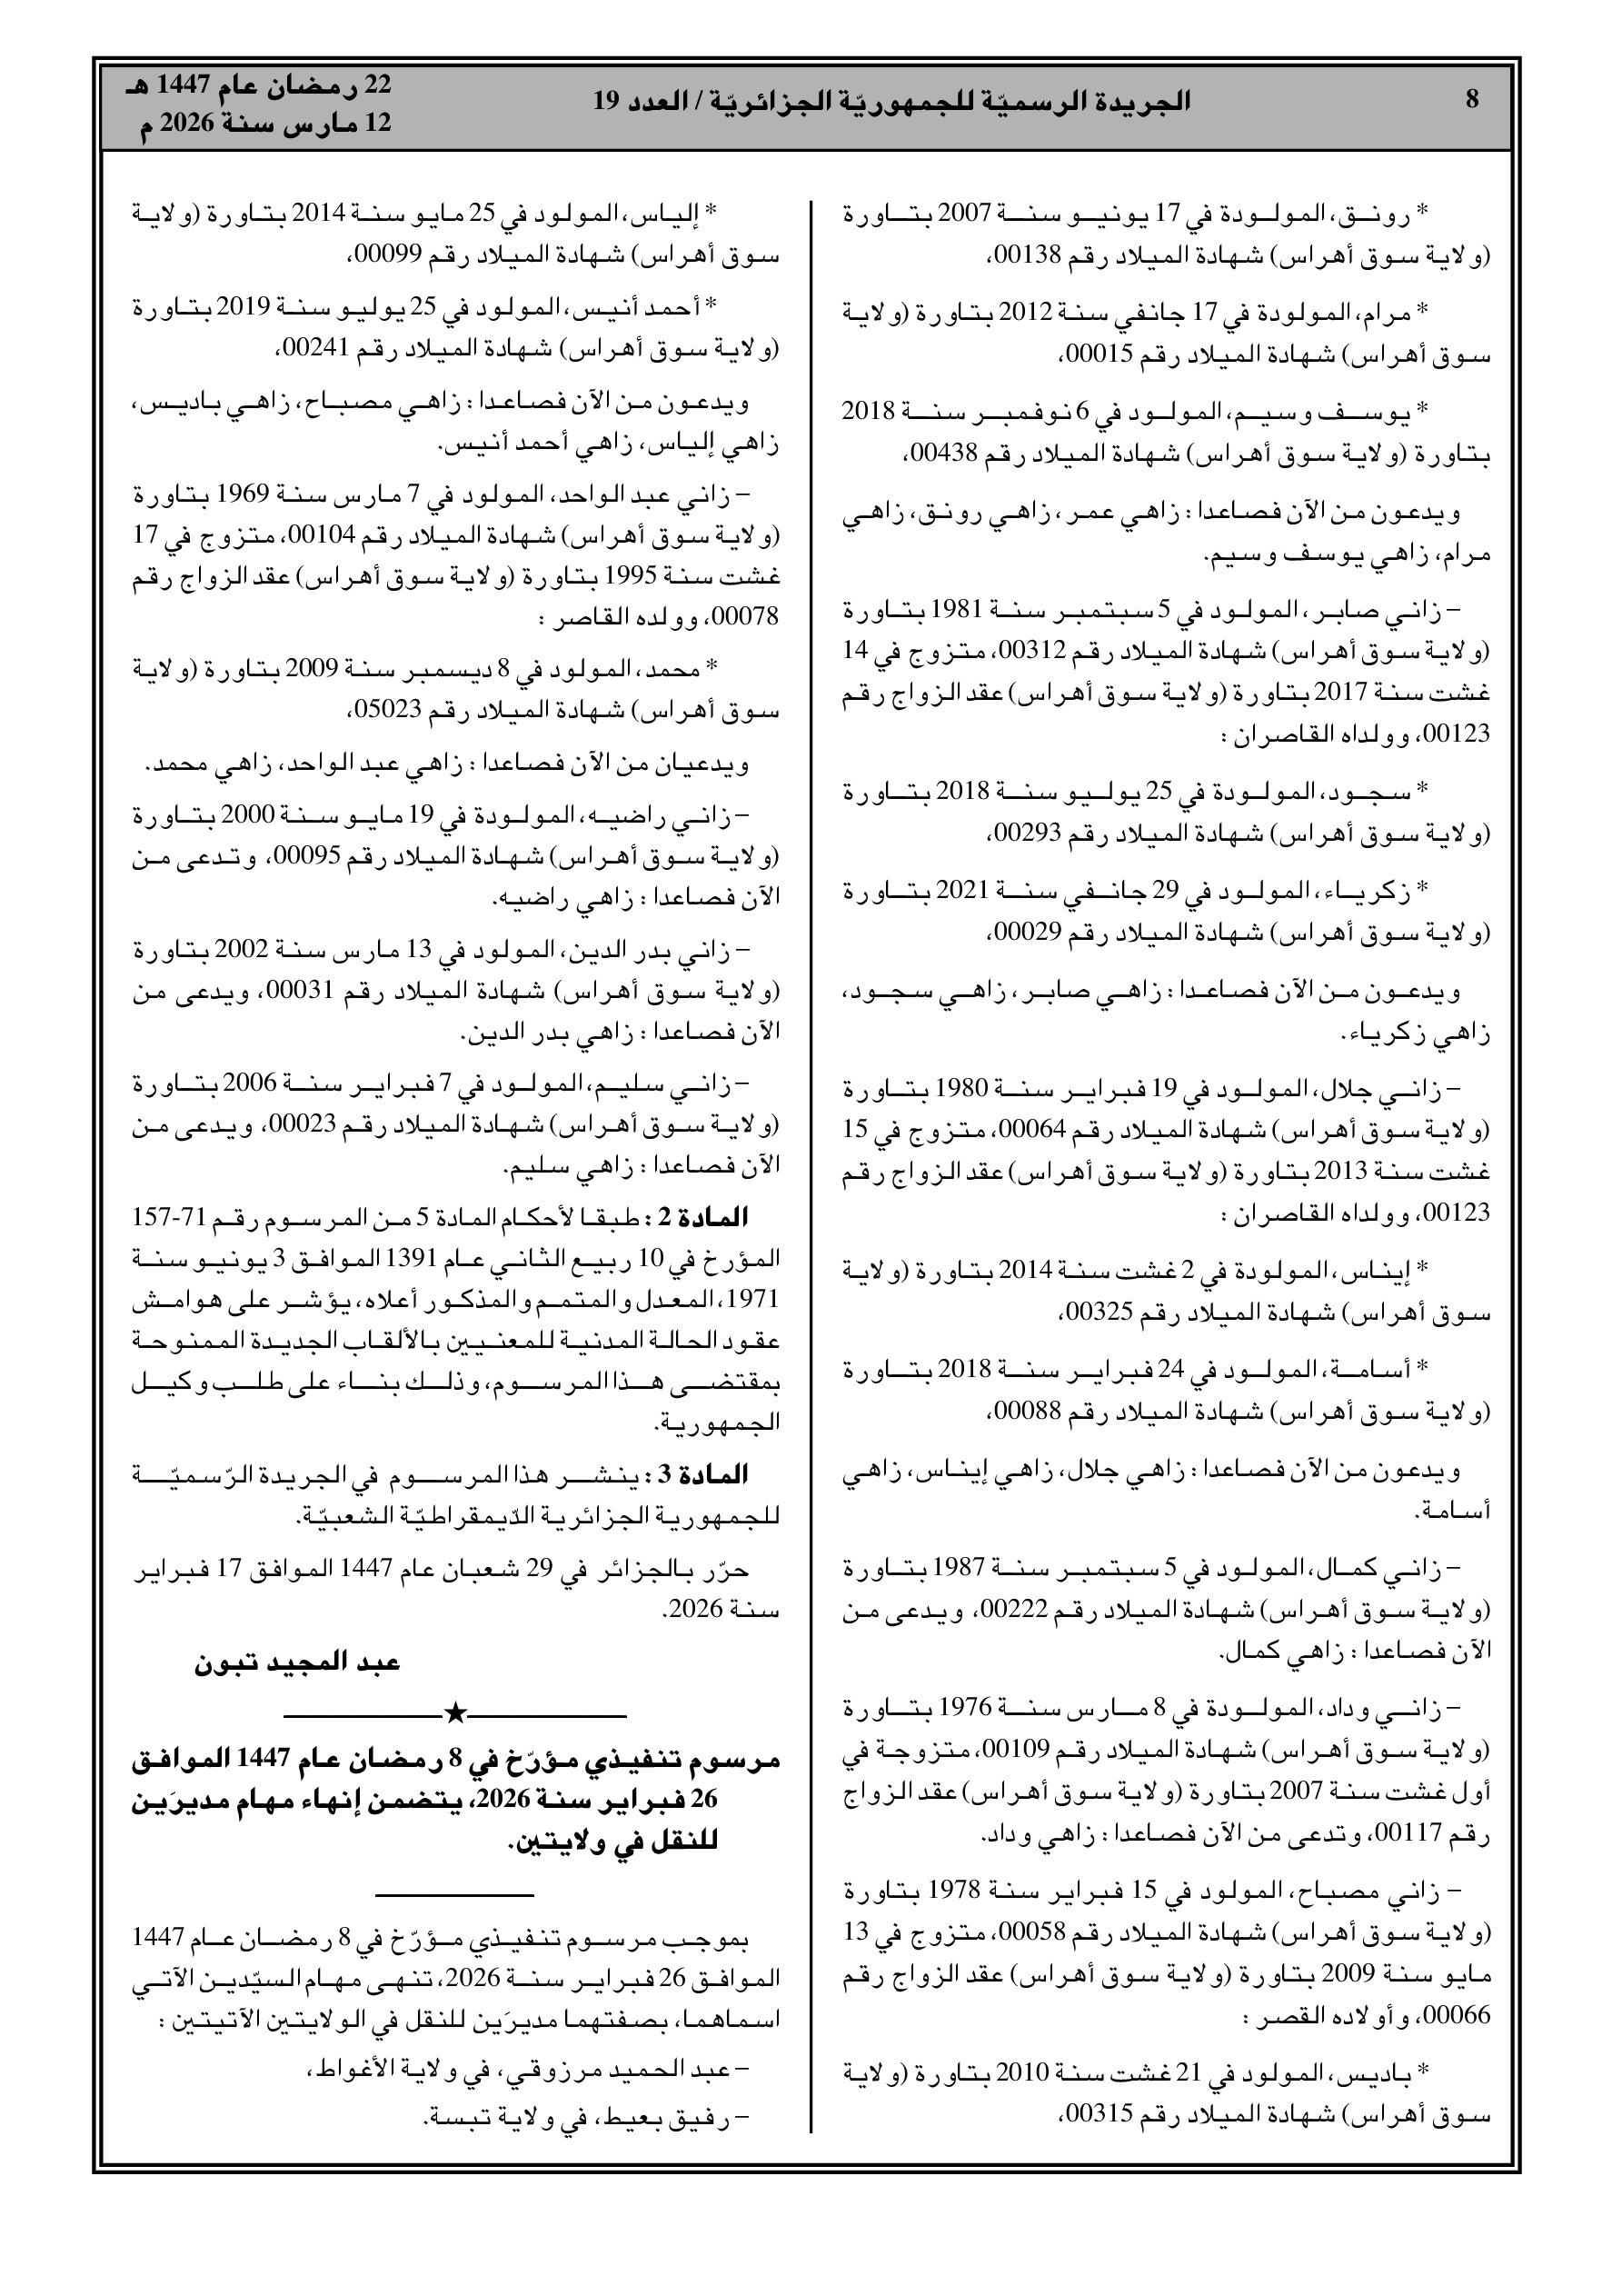 8
الجريدة الرسميّة للجمهوريّة الجزائريّة / العدد 19
22 رمضان عام 1447 هـ
12 مارس سنة 2026 م
* رونق، المولودة في 17 يونيو سنة 2007 بتاورة
(ولاية سوق أهراس) شهادة الميلاد رقم 00138،
* مرام، المولودة في 17 جانفي سنة 2012 بتاورة (ولاية
سوق أهراس) شهادة الميلاد رقم 00015،
* يوسف وسيم، المولود في 6 نوفمبر سنة 2018
بتاورة (ولاية سوق أهراس) شهادة الميلاد رقم 00438،
ويدعون من الآن فصاعدا : زاهي عمر، زاهي رونق، زاهي
مرام، زاهي يوسف وسيم.
– زاني صابر، المولود في 5 سبتمبر سنة 1981 بتاورة
(ولاية سوق أهراس) شهادة الميلاد رقم 00312، متزوج في 14
غشت سنة 2017 بتاورة (ولاية سوق أهراس) عقد الزواج رقم
00123، وولداه القاصران :
* سجود، المولودة في 25 يوليو سنة 2018 بتاورة
(ولاية سوق أهراس) شهادة الميلاد رقم 00293،
* زكرياء، المولود في 29 جانفي سنة 2021 بتاورة
(ولاية سوق أهراس) شهادة الميلاد رقم 00029،
ويدعون من الآن فصاعدا : زاهي صابر، زاهي سجود،
زاهي زكرياء.
– زاني جلال، المولود في 19 فبراير سنة 1980 بتاورة
(ولاية سوق أهراس) شهادة الميلاد رقم 00064، متزوج في 15
غشت سنة 2013 بتاورة (ولاية سوق أهراس) عقد الزواج رقم
00123، وولداه القاصران :
* إيناس، المولودة في 2 غشت سنة 2014 بتاورة (ولاية
سوق أهراس) شهادة الميلاد رقم 00325،
* أسامة، المولود في 24 فبراير سنة 2018 بتاورة
(ولاية سوق أهراس) شهادة الميلاد رقم 00088،
ويدعون من الآن فصاعدا : زاهي جلال، زاهي إيناس، زاهي
أسامة.
– زاني كمال، المولود في 5 سبتمبر سنة 1987 بتاورة
(ولاية سوق أهراس) شهادة الميلاد رقم 00222، ويدعى من
الآن فصاعدا : زاهي كمال.
– زاني وداد، المولودة في 8 مارس سنة 1976 بتاورة
(ولاية سوق أهراس) شهادة الميلاد رقم 00109، متزوجة في
أول غشت سنة 2007 بتاورة (ولاية سوق أهراس) عقد الزواج
رقم 00117، وتدعى من الآن فصاعدا : زاهي وداد.
– زاني مصباح، المولود في 15 فبراير سنة 1978 بتاورة
(ولاية سوق أهراس) شهادة الميلاد رقم 00058، متزوج في 13
مايو سنة 2009 بتاورة (ولاية سوق أهراس) عقد الزواج رقم
00066، وأولاده القصر :
* باديس، المولود في 21 غشت سنة 2010 بتاورة (ولاية
سوق أهراس) شهادة الميلاد رقم 00315،
* إلياس، المولود في 25 مايو سنة 2014 بتاورة (ولاية
سوق أهراس) شهادة الميلاد رقم 00099،
* أحمد أنيس، المولود في 25 يوليو سنة 2019 بتاورة
(ولاية سوق أهراس) شهادة الميلاد رقم 00241،
ويدعون من الآن فصاعدا : زاهي مصباح، زاهي باديس،
زاهي إلياس، زاهي أحمد أنيس.
– زاني عبد الواحد، المولود في 7 مارس سنة 1969 بتاورة
(ولاية سوق أهراس) شهادة الميلاد رقم 00104، متزوج في 17
غشت سنة 1995 بتاورة (ولاية سوق أهراس) عقد الزواج رقم
00078، وولده القاصر :
* محمد، المولود في 8 ديسمبر سنة 2009 بتاورة (ولاية
سوق أهراس) شهادة الميلاد رقم 05023،
ويدعيان من الآن فصاعدا : زاهي عبد الواحد، زاهي محمد.
– زاني راضيه، المولودة في 19 مايو سنة 2000 بتاورة
(ولاية سوق أهراس) شهادة الميلاد رقم 00095، وتدعى من
الآن فصاعدا : زاهي راضيه.
– زاني بدر الدين، المولود في 13 مارس سنة 2002 بتاورة
(ولاية سوق أهراس) شهادة الميلاد رقم 00031، ويدعى من
الآن فصاعدا : زاهي بدر الدين.
– زاني سليم، المولود في 7 فبراير سنة 2006 بتاورة
(ولاية سوق أهراس) شهادة الميلاد رقم 00023، ويدعى من
الآن فصاعدا : زاهي سليم.
المادة 2 : طبقا لأحكام المادة 5 من المرسوم رقم 71-157
المؤرخ في 10 ربيع الثاني عام 1391 الموافق 3 يونيو سنة
1971، المعدل والمتمم والمذكور أعلاه، يؤشر على هوامش
عقود الحالة المدنية للمعنيين بالألقاب الجديدة الممنوحة
بمقتضى هذا المرسوم، وذلك بناء على طلب وكيل
الجمهورية.
المادة 3 : ينشر هذا المرسوم في الجريدة الرّسميّة
للجمهورية الجزائرية الدّيمقراطيّة الشعبيّة.
حرّر بالجزائر في 29 شعبان عام 1447 الموافق 17 فبراير
سنة 2026.
عبد المجيد تبون
مرسوم تنفيذي مؤرّخ في 8 رمضان عام 1447 الموافق
26 فبراير سنة 2026، يتضمن إنهاء مهام مديرَين
للنقل في ولايتين.
بموجب مرسوم تنفيذي مؤرّخ في 8 رمضان عام 1447
الموافق 26 فبراير سنة 2026، تنهى مهام السيّدين الآتي
اسماهما، بصفتهما مديرَين للنقل في الولايتين الآتيتين :
– عبد الحميد مرزوقي، في ولاية الأغواط،
– رفيق بعيط، في ولاية تبسة.